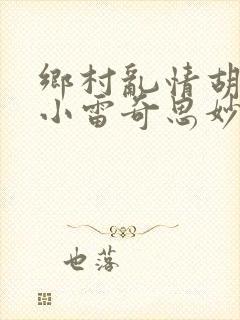 鄉村亂情胡
小雷奇思妙
也落